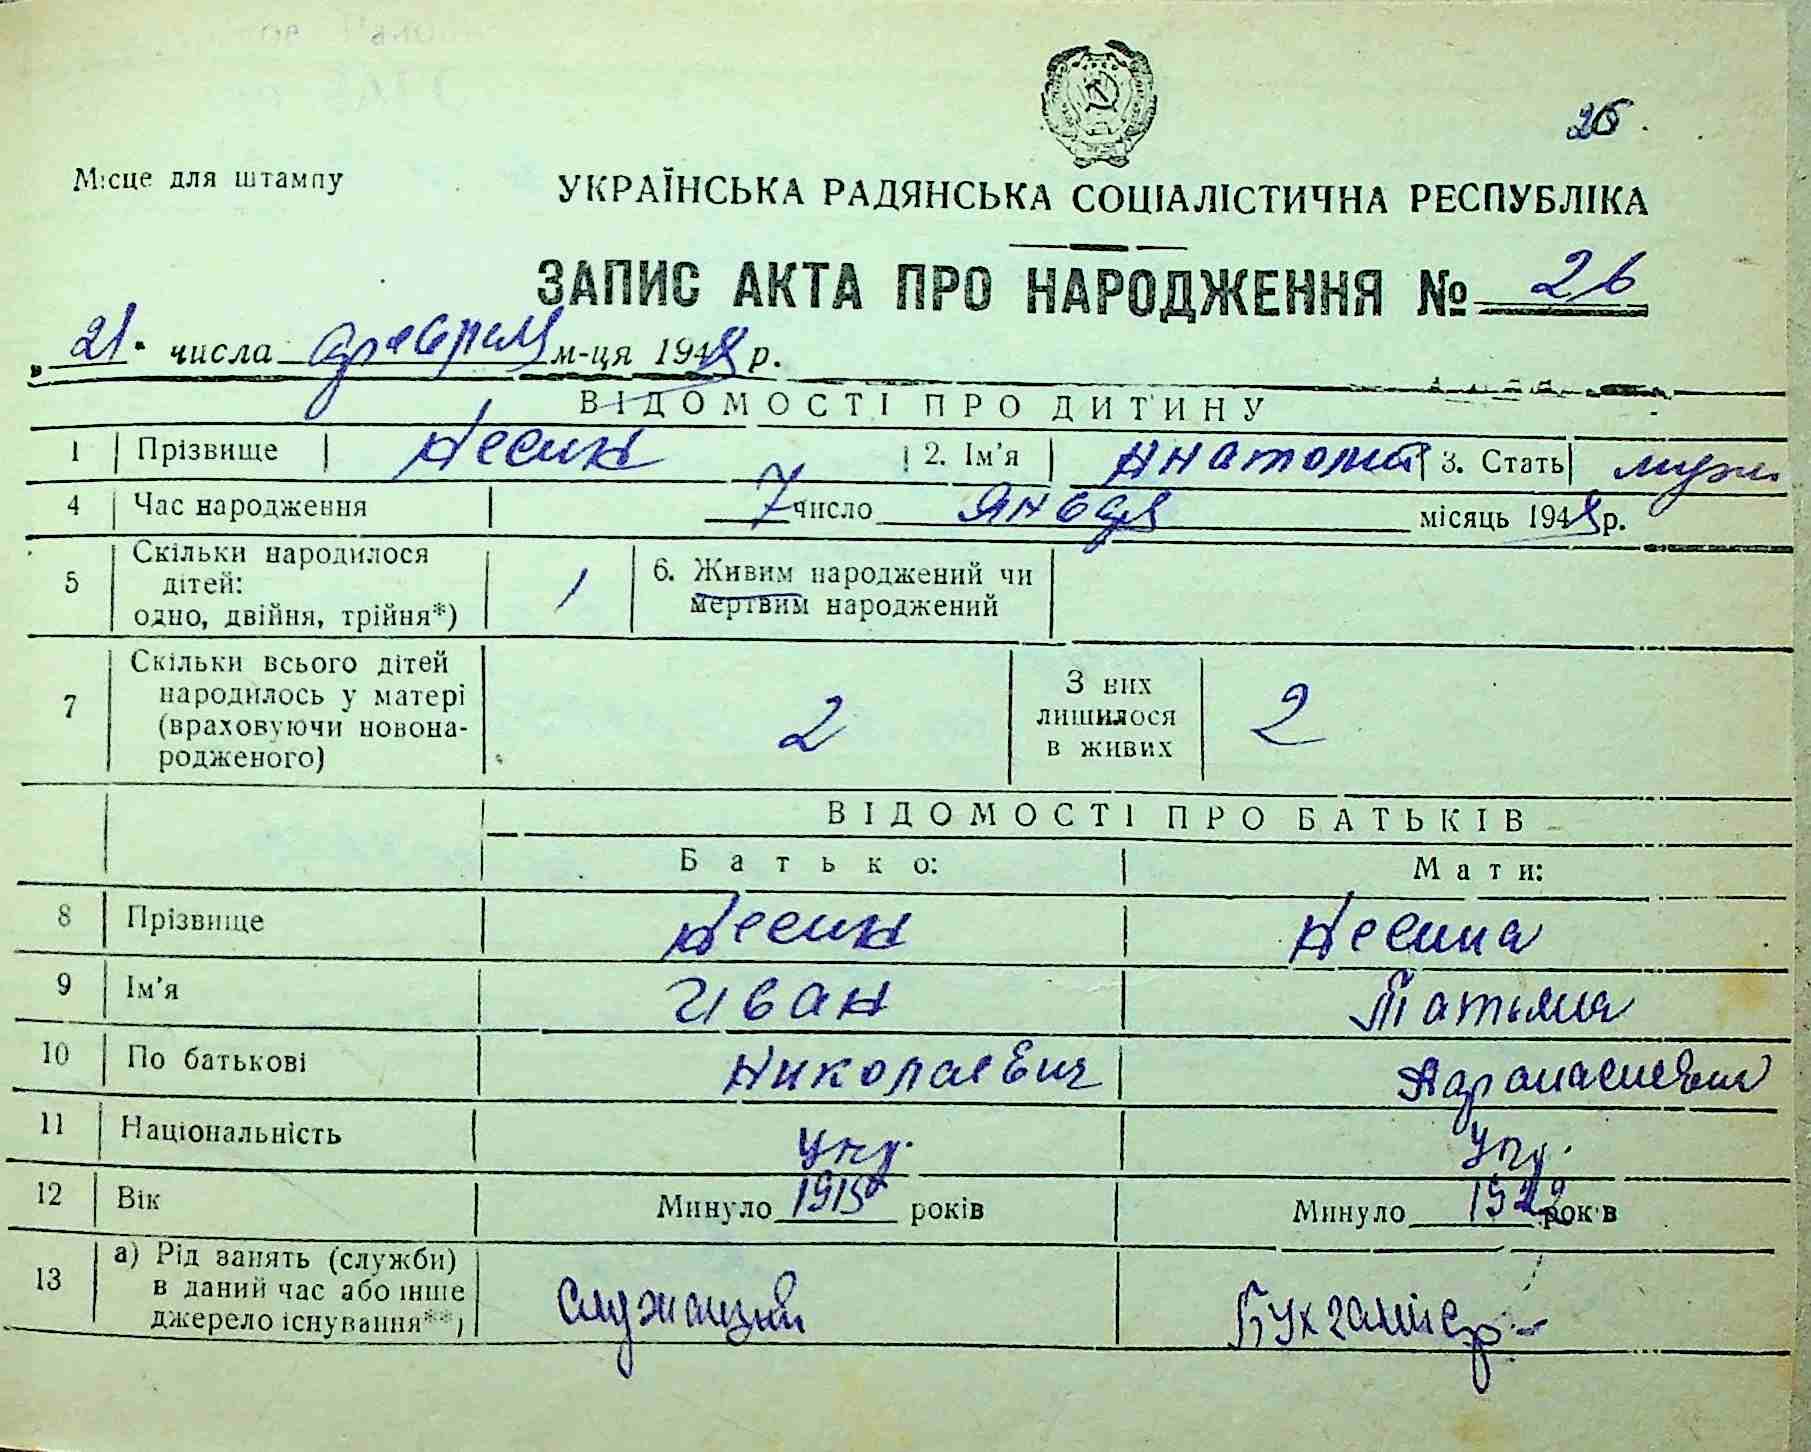 26.
Місце для штампу
УКРАЇНСЬКА РАДЯНСЬКА СОЦІАЛІСТИЧНА РЕСПУБЛІКА
ЗАПИС АКТА ПРО НАРОДЖЕННЯ № 26
„21“ числа февраля м-ця 1948 р.
ВІДОМОСТІ ПРО ДИТИНУ
1 Прізвище Несин 2. Ім’я Анатолий 3. Стать муж.
4 Час народження 7 число января місяць 1948 р.
5 Скільки народилося дітей: одно, двійня, трійня*) 1 6. Живим народжений чи мертвим народжений
7 Скільки всього дітей народилось у матері (враховуючи новонародженого) 2 З них лишилося в живих 2
ВІДОМОСТІ ПРО БАТЬКІВ
Батько: Мати:
8 Прізвище Несин Несина
9 Ім’я Иван Татьяна
10 По батькові Николаевич Афанасиевна
11 Національність укр. укр.
12 Вік Минуло 1915 років Минуло 1922 років
13 а) Рід занять (служби) в даний час або інше джерело існування**) Служащий Бухгалтер